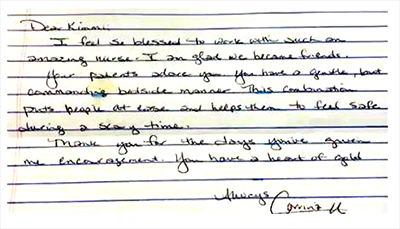 Dear Kimmi,
I feel so blessed to work with such an
amazing nurse. I am glad we became friends.
Your patients adore you. You have a gentle, but
commanding bedside manner. This combination
puts people at ease and helps them to feel safe
during a scary time.
Thank you for the days you've given
me encouragement. You have a heart of gold
Always